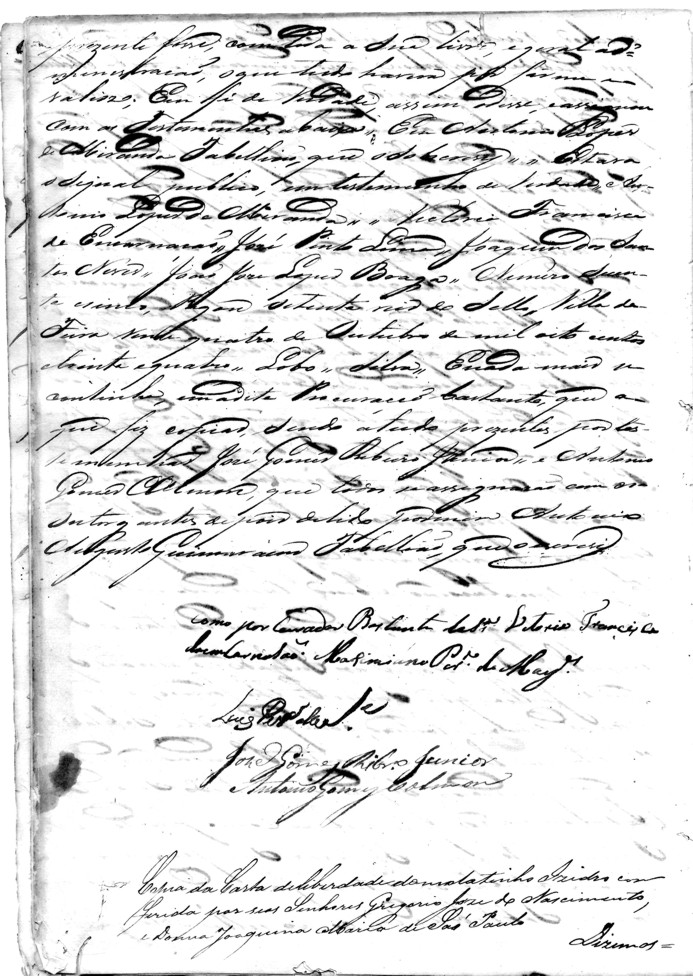 prezente fosse, com toda a sua livre e geral ad
menistracaõ, o que tudo havia por firme e
valiozo. Em fé de Verdade, assim disse e assignou
com as Testemunhas abaixo,, Eu Antonio Lopes
de Miranda Tabelliaõ, que o sobscrevy,, ,, Estava
o signal publico, em testemunho de verdade, An
tonio Lopes de Miranda,, ,, Victoria Francisca
de Encarnacaõ,, José Pinto Lima,, Joaquim dos San
tos Neves,, João Jose Lopes Braga,, Numero
e cento, Pagou setenta reis de Sello, Villa da
Feira vinte quatro de Outubro de mil oito centos
e trinta e quatro,, Lobo,, Silva,, E nada mais se
continha em dita Procuracaõ bastante, que a
qui fiz copiar, sendo a tudo prezentes por tes
temunhas José Gomes Ribeiro Junior,, e Antonio
Gomes, que todos assignaraõ com os
outorgantes depois de lido por mim Antonio
Augusto Guimaraens Tabelliaõ, que o escrevi
como por Curador Bastante da Sra. Vitoria Francisca
da emcarnasaõ. Maximiano Per. de Mag.
Luiz
José Gomes Ribro. Junior
Antonio Gomes
Copia da Carta de liberdade do molatinho Izidro con
ferida por seos Senhores Gregorio Jose do Nascimento,
e Donna Joaquina Maria de Saõ Paulo
Dizemos=